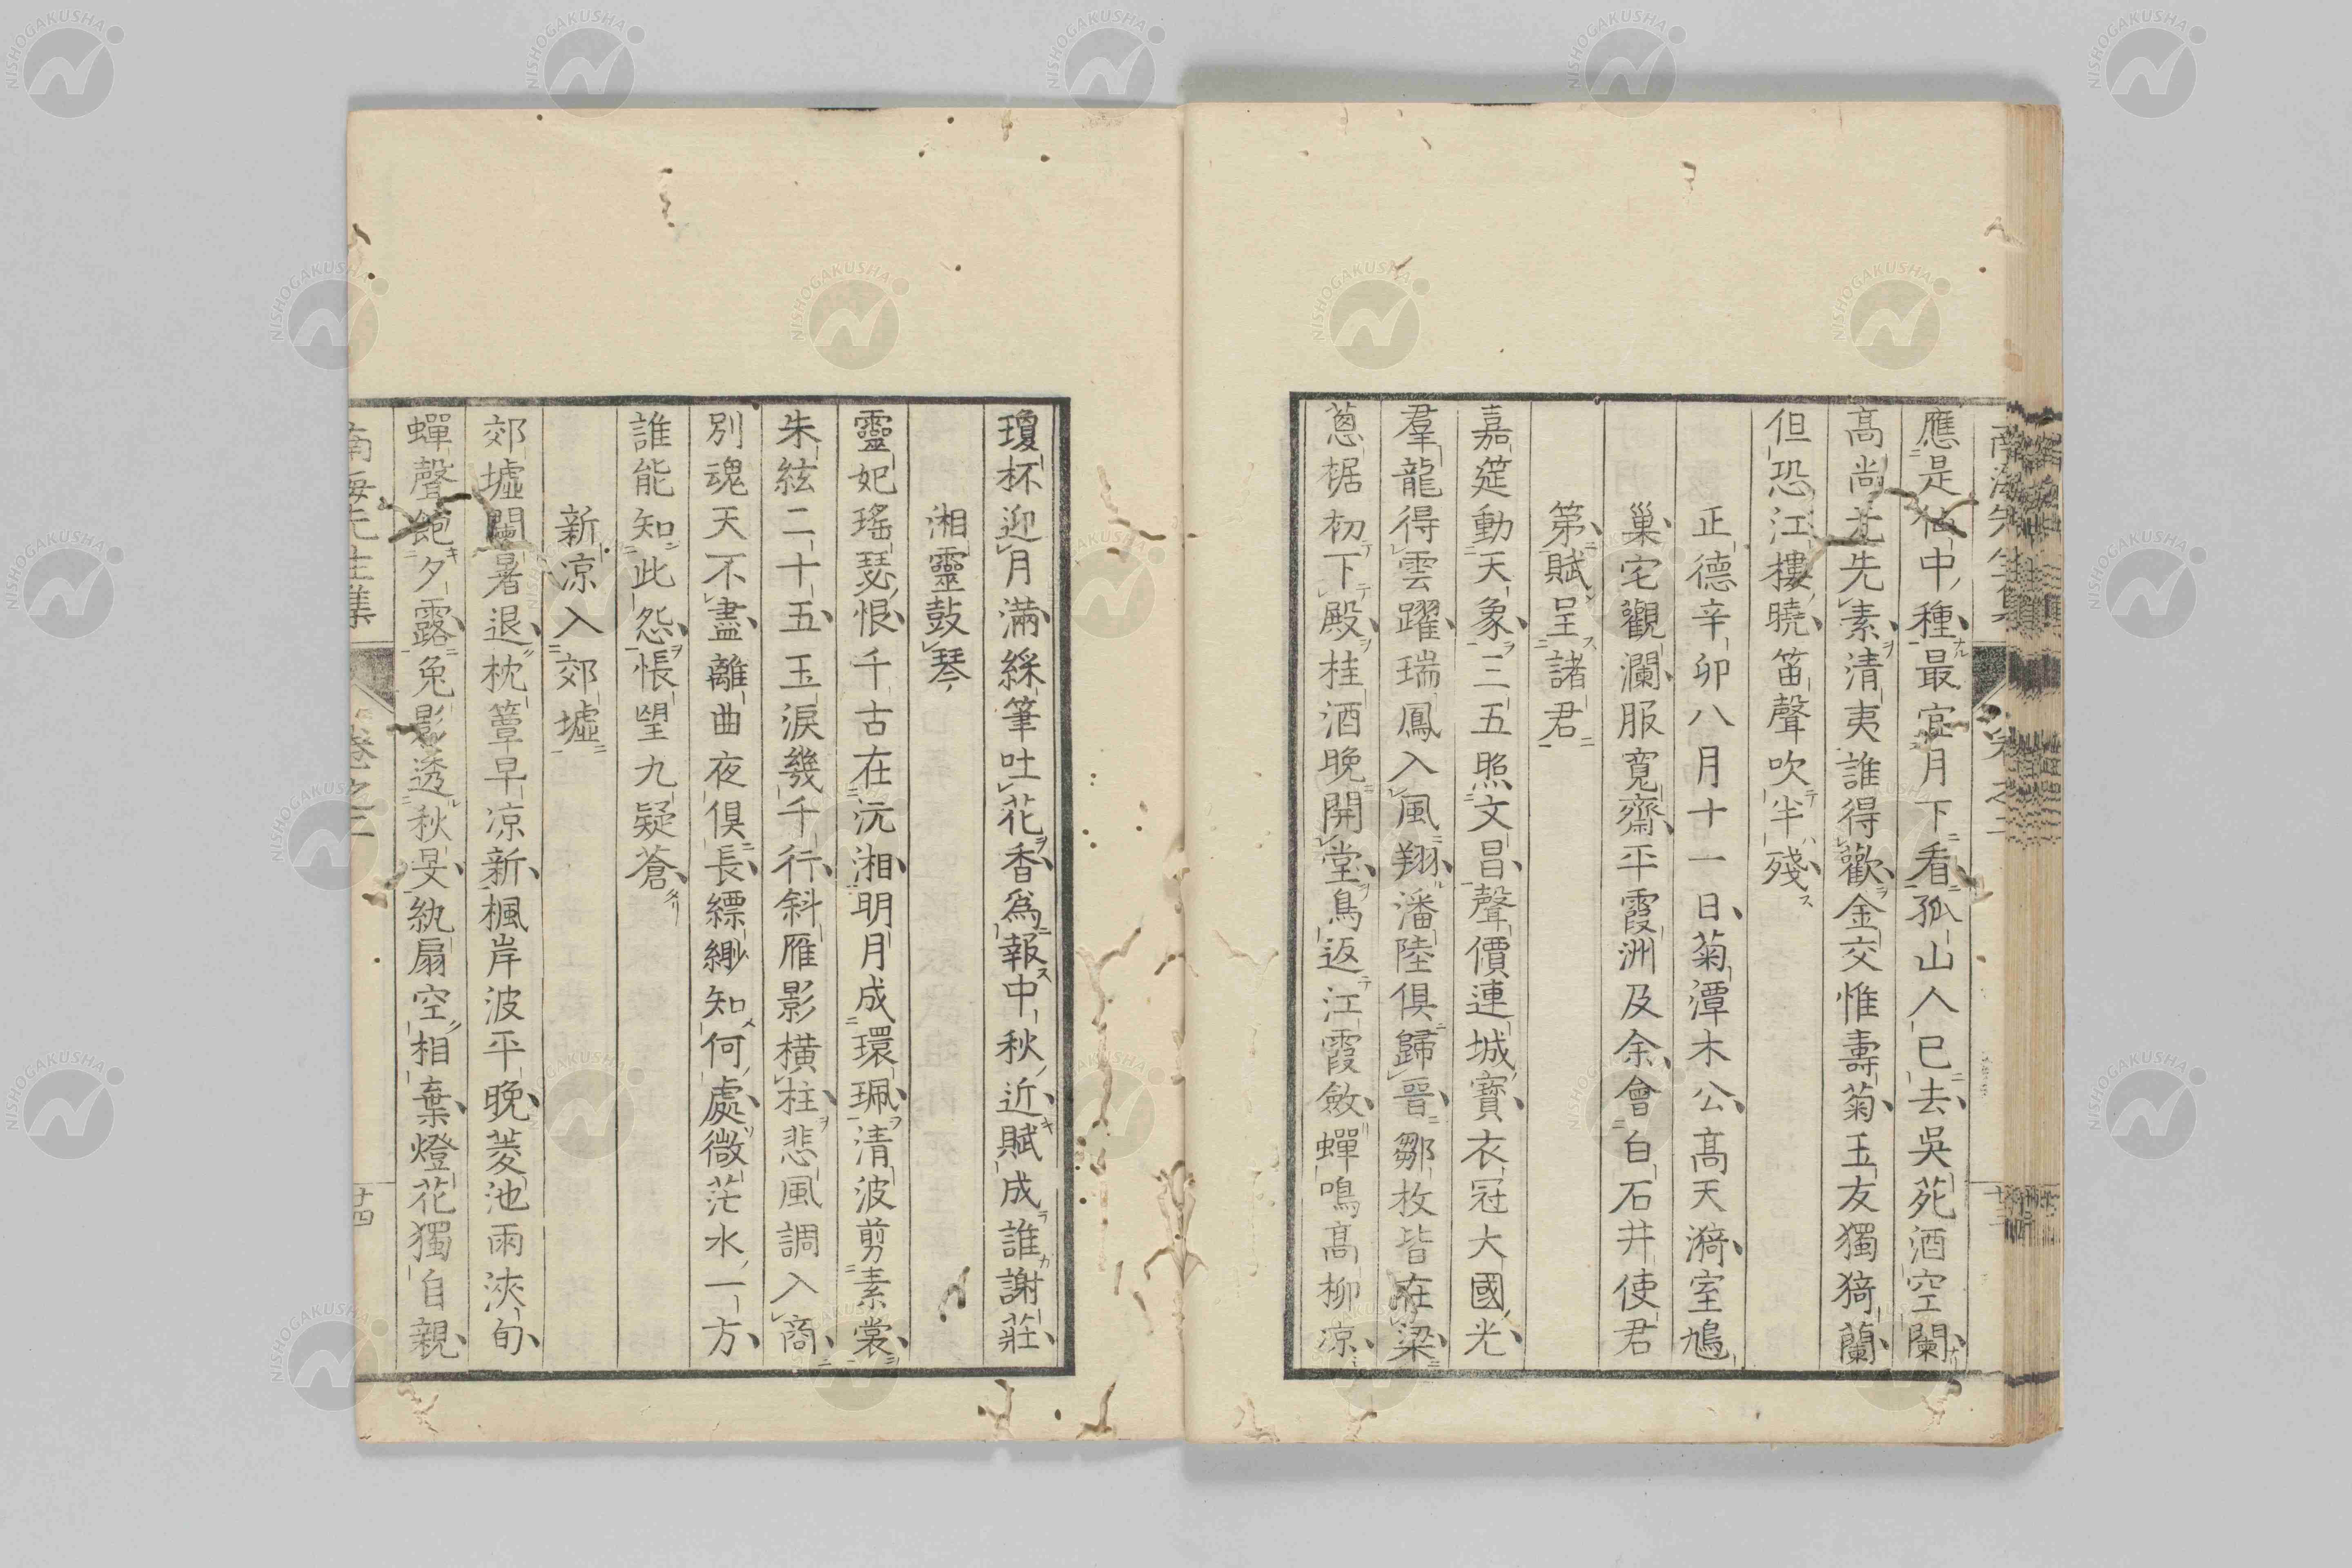 應是仙中種最宜月下看孤山人已去吳苑酒空闌
高尚尤先素清夷誰得歡金交惟壽菊玉友獨猗蘭
但恐江樓曉笛聲吹半殘
正德辛卯八月十一日菊潭木公高天漪室鳩
巢宅觀瀾服寬齋平霞洲及余會白石井使君
第賦呈諸君
嘉筵動天象三五照文昌聲價連城寶衣冠大國光
羣龍得雲躍瑞鳳入風翔潘陸俱歸晋鄒枚皆在梁
蔥椐杒下殿桂酒晚開堂鳥返江霞斂蟬鳴高柳凉
瓊杯迎月滿綵筆吐花香爲報中秋近賦成誰謝莊
湘靈鼓琴
靈妃瑤瑟恨千古在沅湘明月成環珮清波剪素裳
朱絃二十五玉淚幾千行斜雁影橫柱悲風調入商
別魂天不盡離曲夜俱長縹緲知何處微茫水一方
誰能知此怨悵望九疑蒼
新凉入郊墟
郊墟闌暑退枕簟早凉新楓岸波平晚菱池雨浹旬
蟬聲飽夕露兔影透秋旻紈扇空相棄燈花獨自親
南海先生集 卷之二 十四
NISHOGAKUSHA